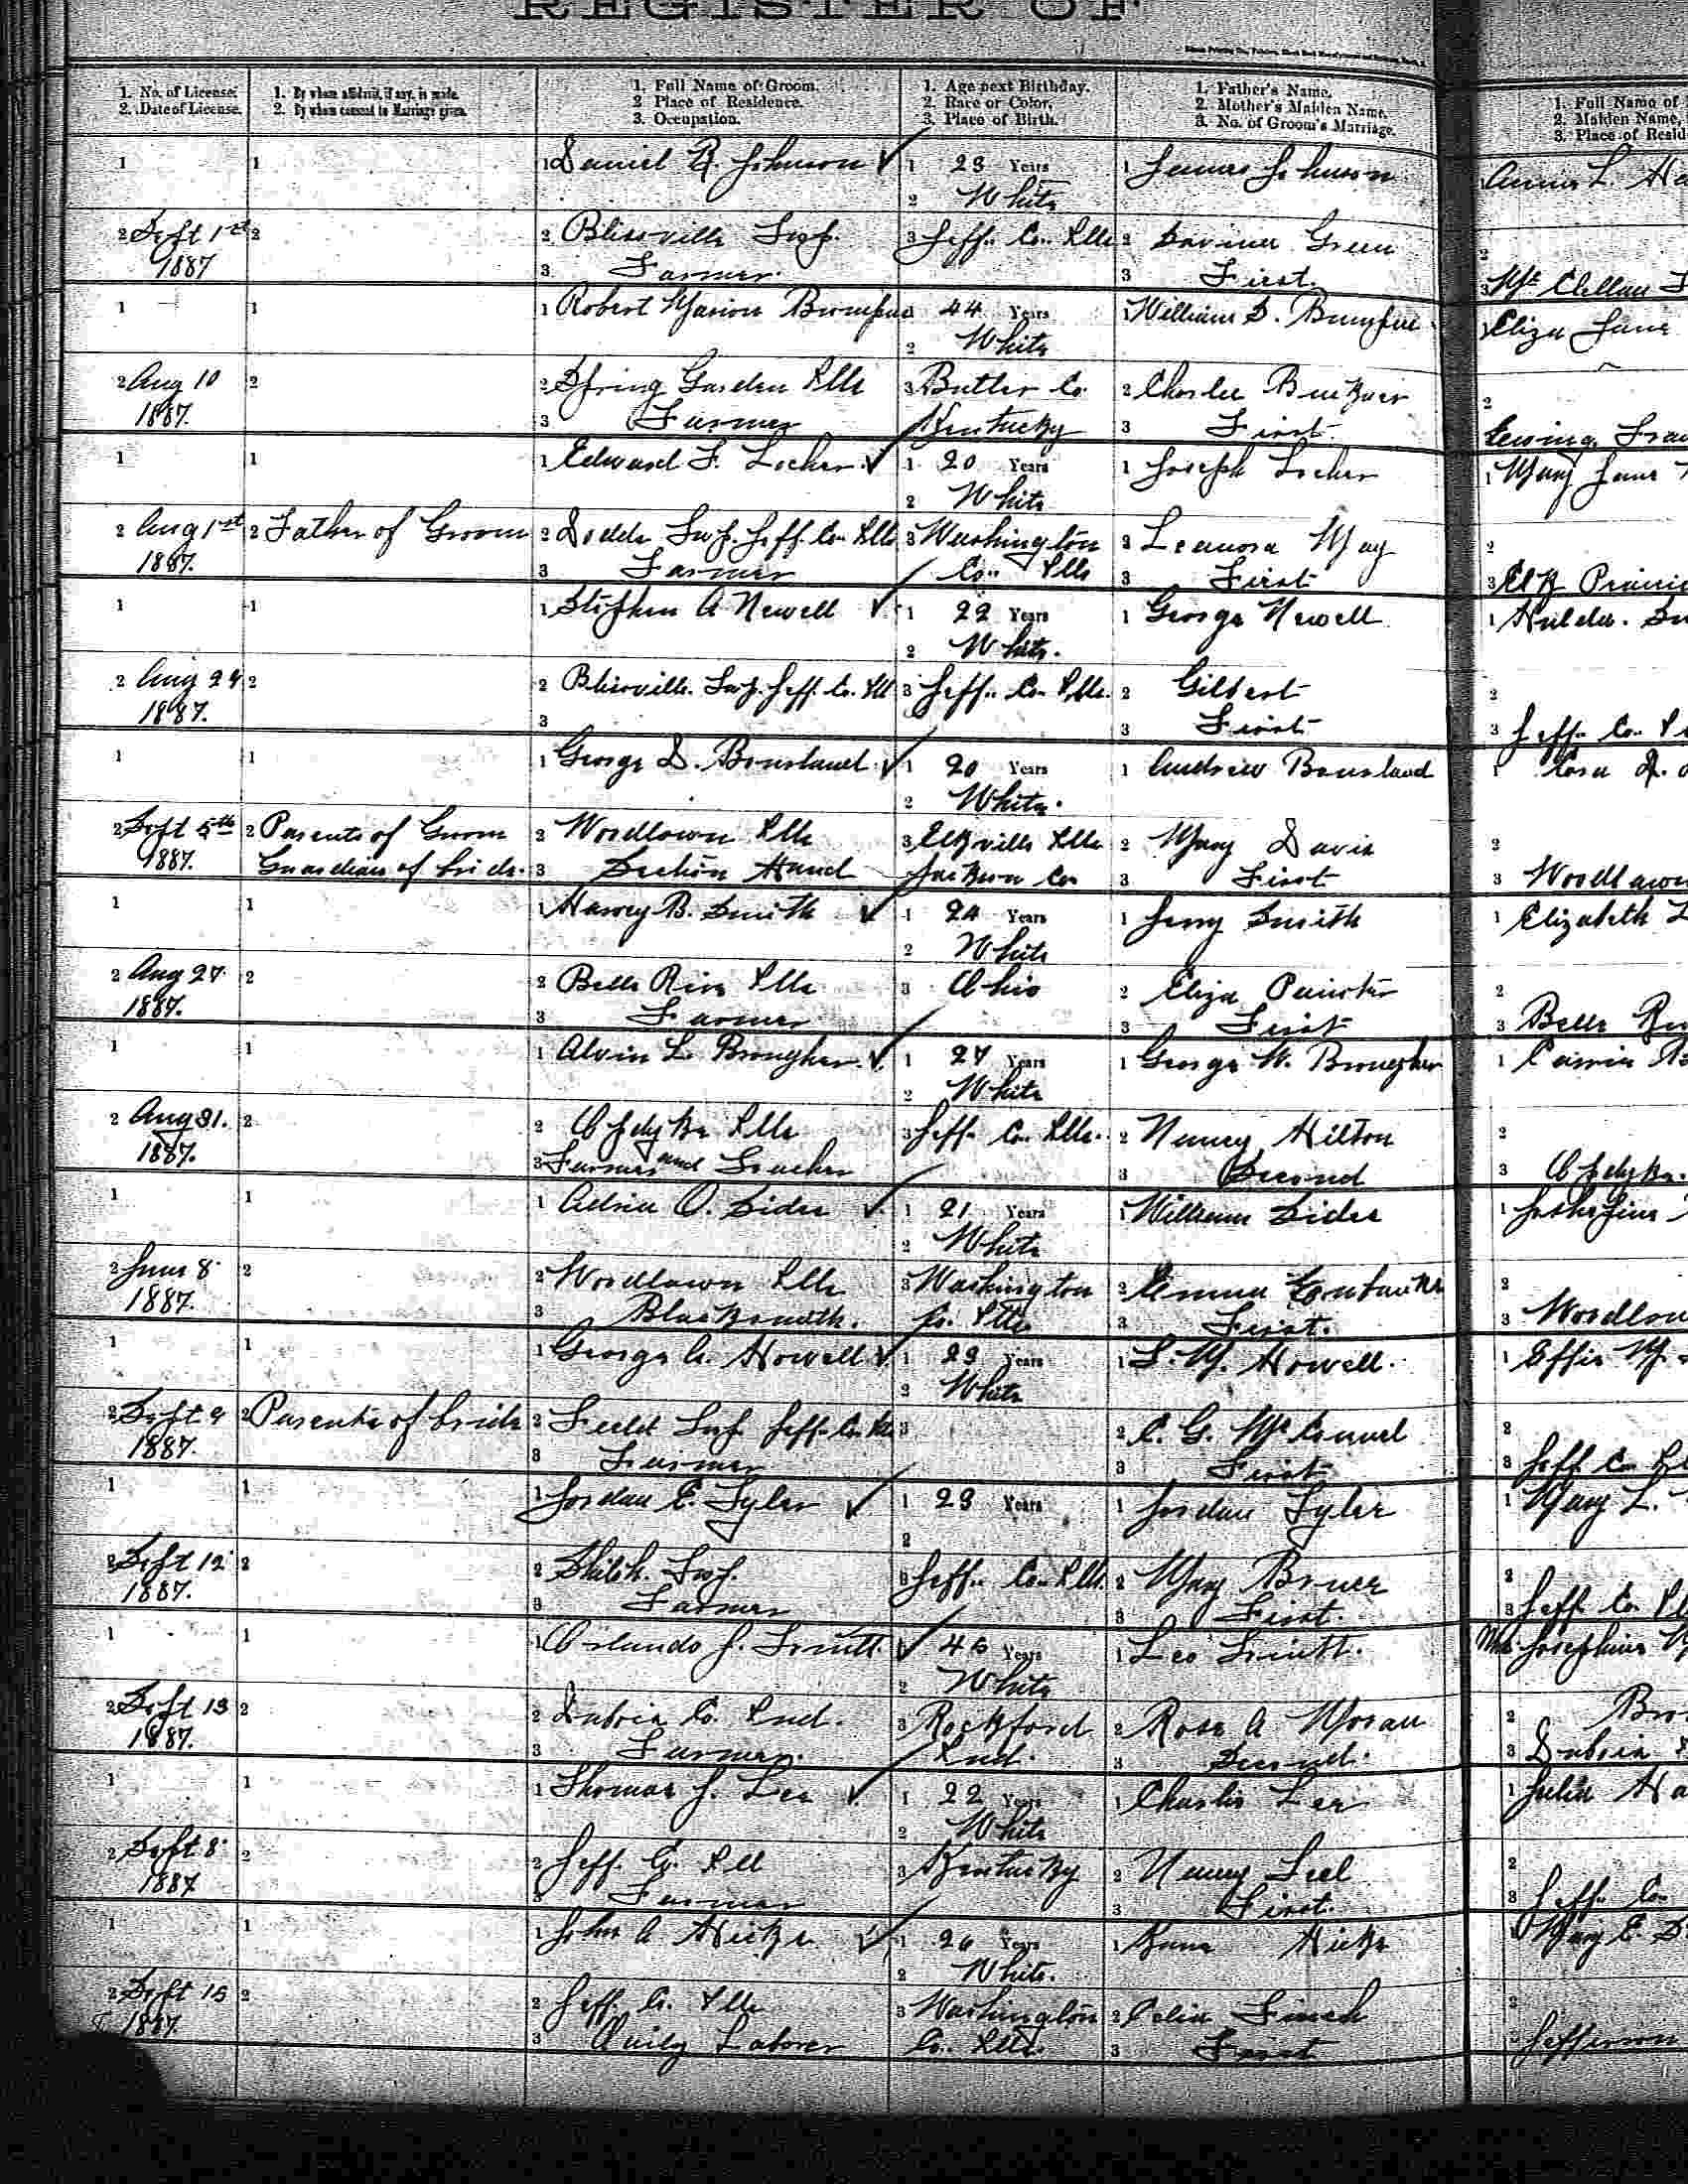 REGISTER OF
1. No. of License.
2. Date of License.
1. By whom affidavit, if any, is made.
2. By whom consent to Marriage given.
1. Full Name of Groom.
2 Place of Residence.
3. Occupation.
1. Age next Birthday.
2. Race or Color.
3. Place of Birth.
1. Father's Name.
2. Mother's Maiden Name.
3. No. of Groom's Marriage.
1. Full Name of
2. Maiden Name,
3. Place of Resid
1 1 1 Daniel R. Johnson ✓ 1 23 Years 1 James Johnson
2 White
2 Sept 1st 2 2 Blissville Twp. 3 Jeff. Co. Ills 2 Green
1887 3 Farmer 3 First. 3 Mt Clellan
1 1 1 Robert Marion 1 44 Years 1 William S. Eliza Jane
2 White
2 Aug 10 2 2 Spring Garden Ills 3 Butler Co. 2 2
1887. 3 Farmer Kentucky 3 First
1 1 1 Edward F. Locher ✓ 1 20 Years 1 Joseph Locher 1 Mary Jane
2 White
2 Aug 1st 2 Father of Groom 2 Dodds Twp. Jeff. Co. Ills 3 Washington 2 Leanora May 2
1887. 3 Farmer Co. Ills 3 First 3 Elk Prairie
1 1 1 Stephen A Newell ✓ 1 22 Years 1 George Newell 1 Hulda.
2 White.
2 Aug 24 2 2 Blissville. Twp. Jeff. Co. Ill 3 Jeff. Co. Ills. 2 Gilbert 2
1887. 3 3 First 3 Jeff. Co.
1 1 1 George D. Bousland ✓ 1 20 Years 1 Andrew Bousland 1 Rosa
2 White.
2 Sept 5th 2 Parents of Groom 2 Woodlawn Ills 3 Elkville Ills 2 Mary Davis 2
1887. Guardian of bride. 3 Section Hand Jackson Co 3 First 3 Woodlawn
1 1 1 Harvey B. Smith ✓ 1 24 Years 1 Jerry Smith 1 Elizabeth
2 White
2 Aug 27 2 2 Belle Rive Ills 3 Ohio 2 Eliza Painter 2
1887. 3 Farmer 3 First 3 Belle
1 1 1 Alvin L. Brougher ✓ 1 27 Years 1 George W. Brougher 1
2 White
2 Aug 31. 2 2 Opdyke Ills 3 Jeff. Co. Ills. 2 Nancy Hilton 2
1887. 3 Farmer and Teacher 3 Second 3 Opdyke.
1 1 1 O. Sides ✓ 1 21 Years 1 William Sides 1
2 White
2 June 8 2 2 Woodlawn Ills 3 Washington 2 Emma 2
1887. 3 Blacksmith. Co. Ills 3 First. 3 Woodlawn
1 1 1 George A. Howell ✓ 1 23 Years 1 S. M. Howell. 1 Effie M.
2 White
2 Sept 9 2 Parents of bride 2 Field Twp. Jeff. Co. Ills 3 2 C. G. 2
1887. 3 Farmer 3 First 3 Jeff. Co.
1 1 1 Jordan C. Tyler ✓ 1 23 Years 1 Jordan Tyler 1 Mary L.
2
2 Sept 12 2 2 Shiloh. Twp. 3 Jeff. Co. Ills. 2 Mary Bruce 2
1887. 3 Farmer 3 First. 3 Jeff. Co.
1 1 1 Orlando J. ✓ 46 Years 1 Leo Mrs Josephine
2 White
2 Sept 13 2 2 Dubois Co. Ind. 3 Rockford 2 Rose A Moran 2
1887. 3 Farmer. Ind. 3 Second. 3 Dubois
1 1 1 Thomas J. Lee ✓ 1 22 Years 1 Charles Lee 1 Julia
2 White
2 Sept 8 2 2 Jeff. Co. Ill 3 Kentucky 2 Nancy 2
1887 3 Farmer 3 First. 3 Jeff. Co.
1 1 1 John A Hicks ✓ 1 26 Years 1 Hicks Mary E.
2 White.
2 Sept 15 2 2 Jeff. Co. Ills 3 Washington 2 Celia Finch 2
1887 3 Laborer Co. Ills. 3 First Jefferson